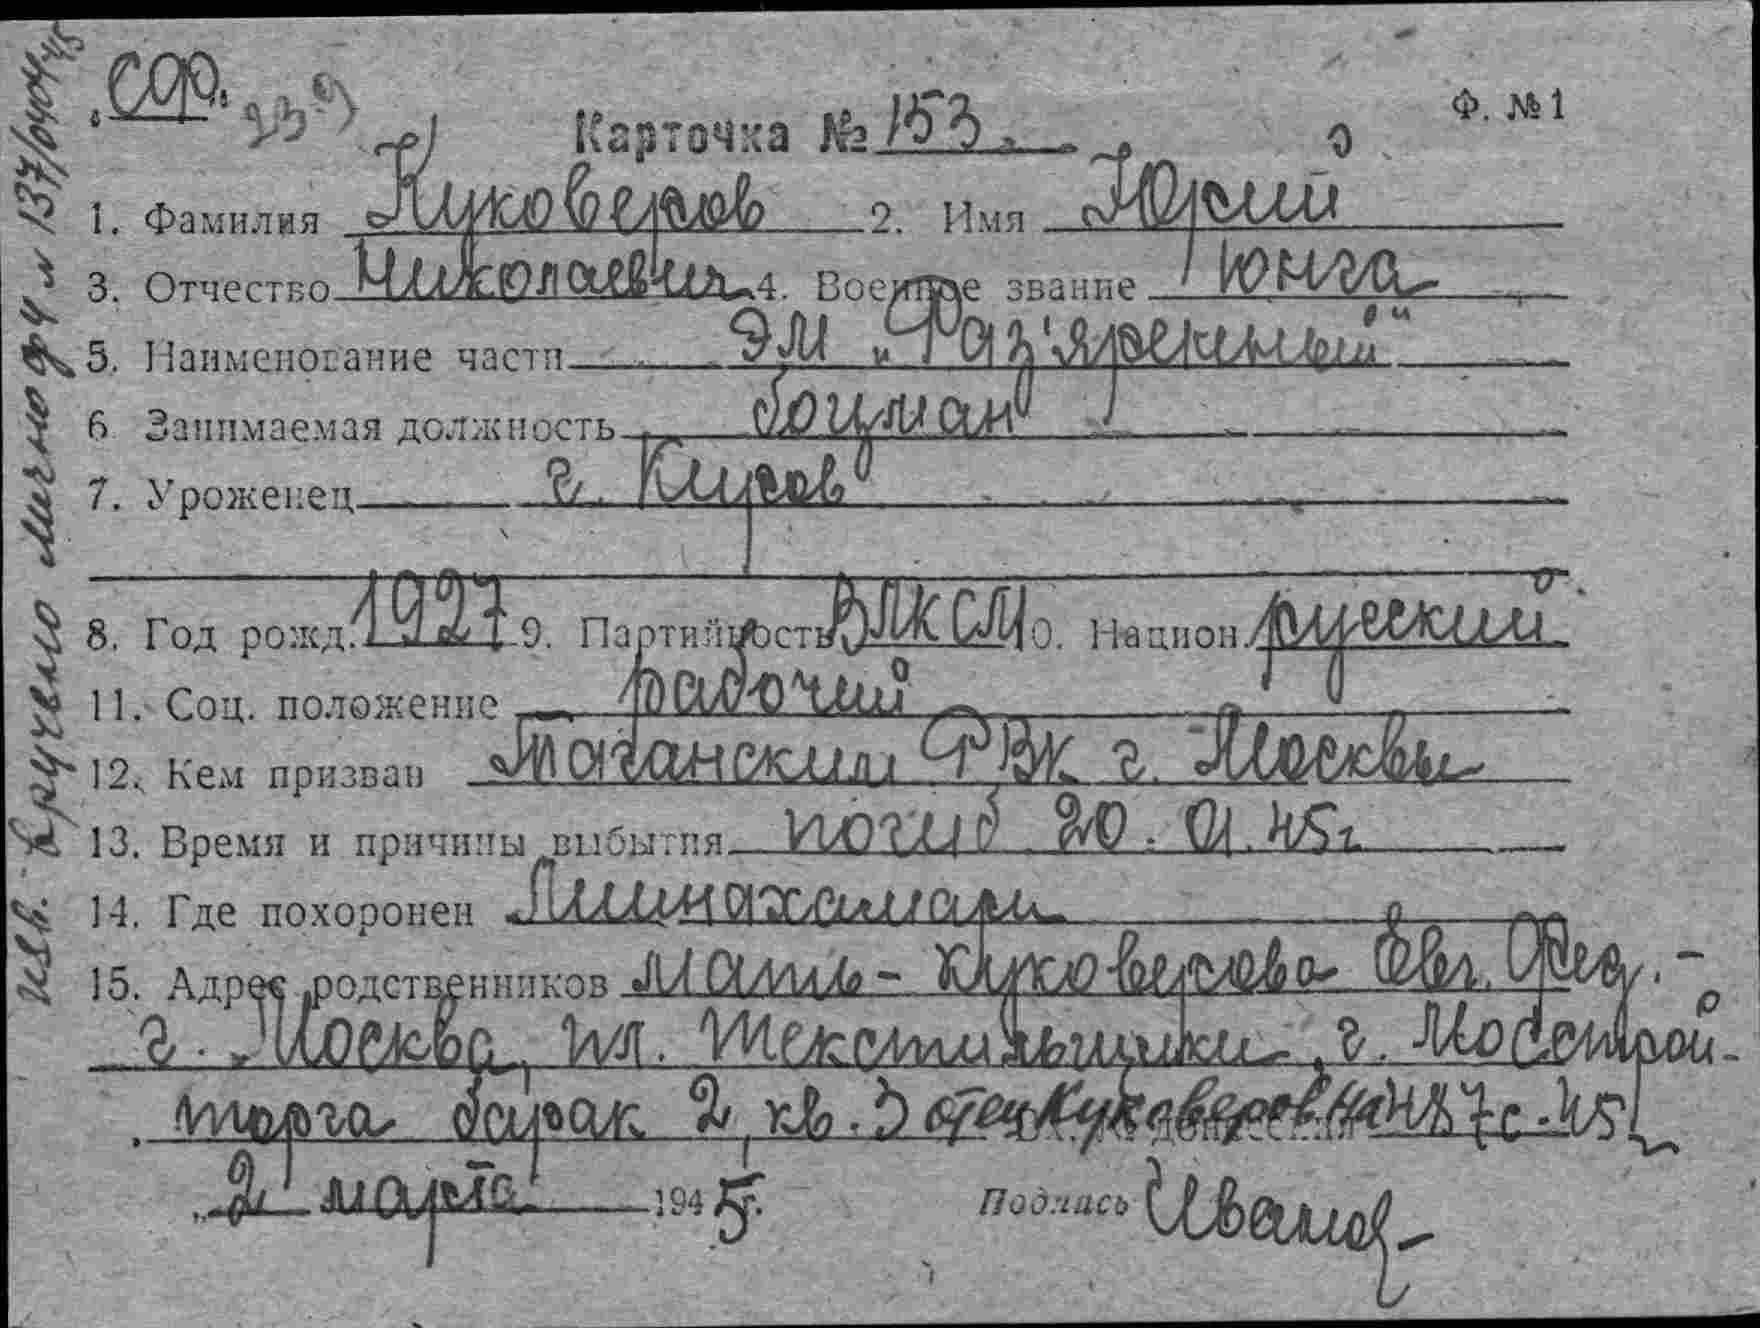 СФ.
Ф. №1
Карточка № 153.
1. Фамилия Куковеров 2. Имя Юрий
3. Отчество Николаевич 4. Военное звание юнга
5. Наименование части ЭМ "Раз'яренный"
6 Занимаемая должность боцман
7. Уроженец г. Киров
8. Год рожд. 1927 9. Партийность ВЛКСМ 10. Национ. русский
11. Соц. положение рабочий
12. Кем призван Таганским РВК г. Москвы
13. Время и причины выбытия погиб 20.01.45г
14. Где похоронен Лиинахамари
15. Адрес родственников мать - Куковерова Евг. Фед. -
г. Москва, пл. Текстильщики, г. Мосстрой-
торга барак 2, кв. 3 отец Куковеров
"2" марта 1945г.
Подпись Иванов
изв. вручено лично